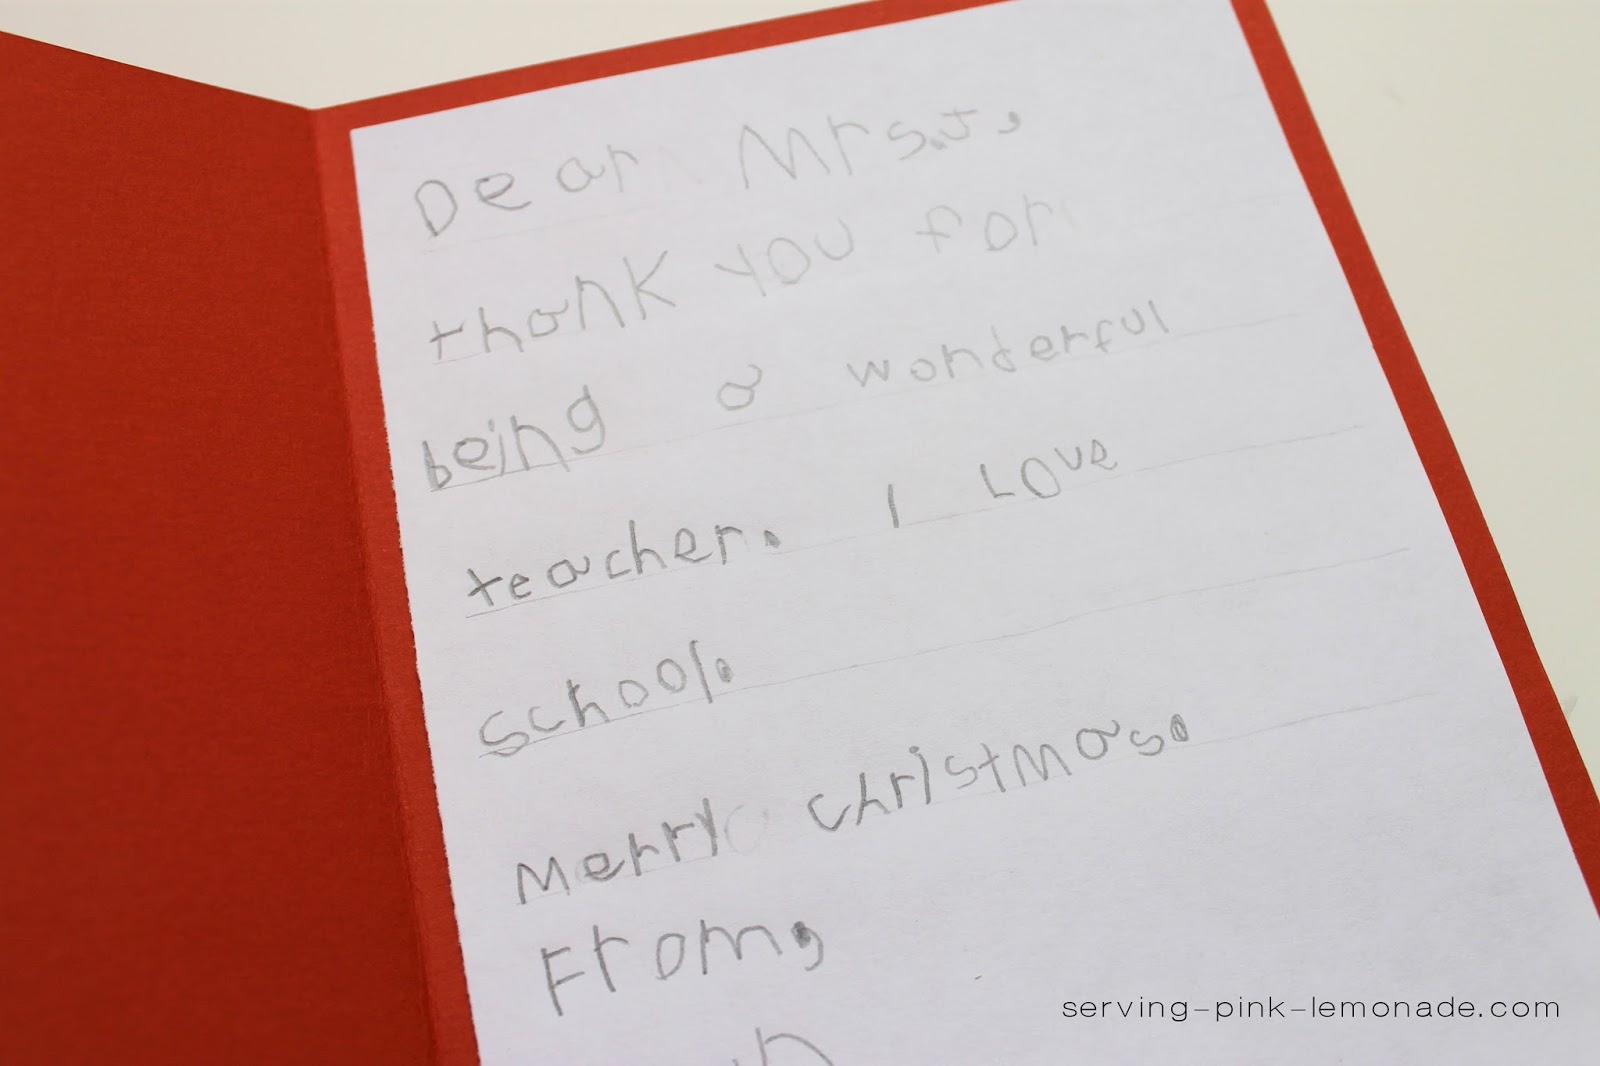 Dear Mrs. J,
thank you for
being a wonderful
teacher. I Love
school.
Merry christmas.
From,
serving-pink-lemonade.com